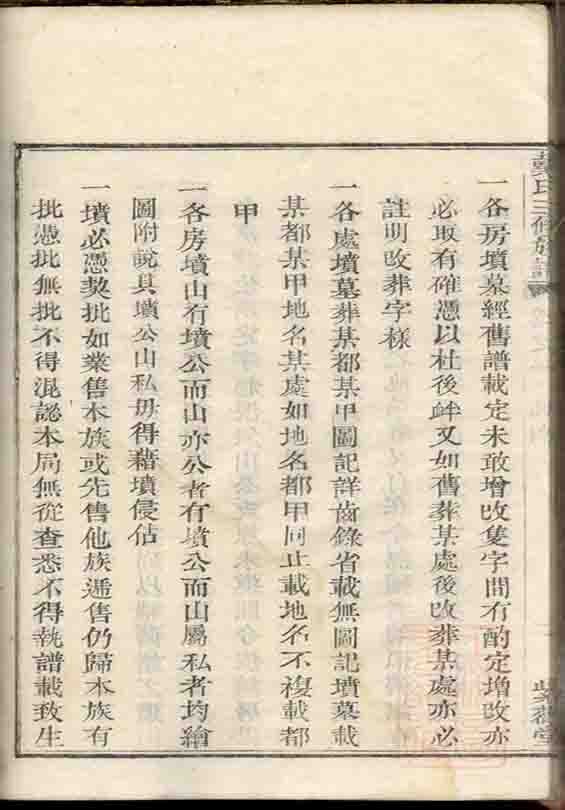 氏三修族譜
一各房墳墓經舊譜載定未敢增改隻字間有酌定增改亦
必取有確憑以杜後衅又如舊葬某處後改葬某處亦必
註明改葬字樣
一各處墳墓葬某都某甲圖記詳齒錄省載無圖記墳墓載
某都某甲地名某處如地名都甲同止載地名不複載都
甲
一各房墳山有墳公而山亦公者有墳公而山屬私者均繪
圖附說具墳公山私毋得藉墳侵佔
一墳必憑契批如業售本族或先售他族遞售仍歸本族有
批憑批無批不得混認本局無從查悉不得執譜載致生
堂